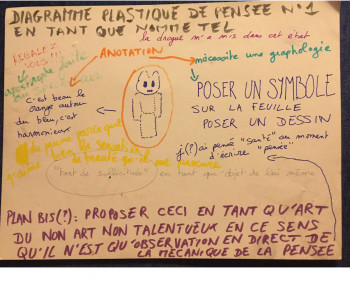 DIAGRAMME PLASTIQUE DE PENSÉE N°1
EN TANT QUE NOMMÉ TEL
la drogue m'a mis dans cet état
ANOTATION
nécessite une graphologie
c'est beau le
orange autour
du bleu, c'est
harmonieux
POSER UN SYMBOLE
SUR LA FEUILLE
POSER UN DESSIN
j(?)ai pensé "santé" au moment
d'écrire "pensée"
du jaune parce que
de beauté qu'il me procure
en tant que objet de lui même
PLAN BIS(?): PROPOSER CECI EN TANT QU'ART
DU NON ART NON TALENTUEUX EN CE SENS
QU'IL N'EST QU'OBSERVATION EN DIRECT DE
LA MÉCANIQUE DE LA PENSÉE